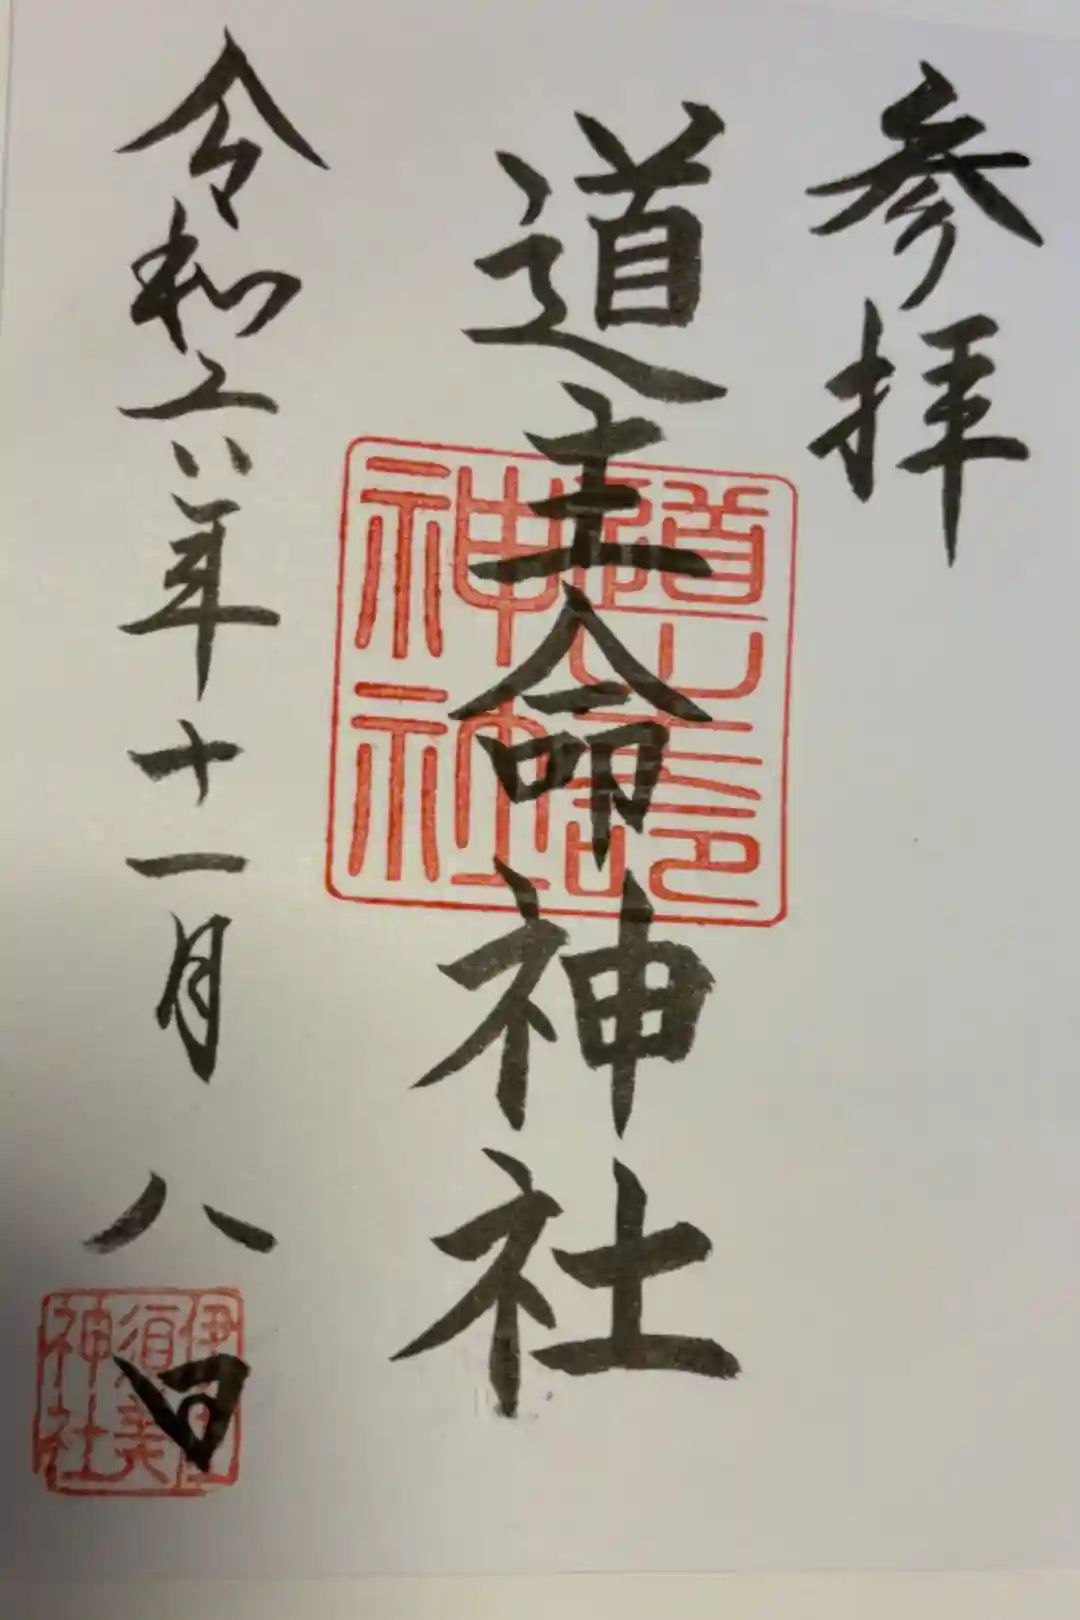 参拝
道主命神社
道主命
神社
令和六年十一月八日
神社